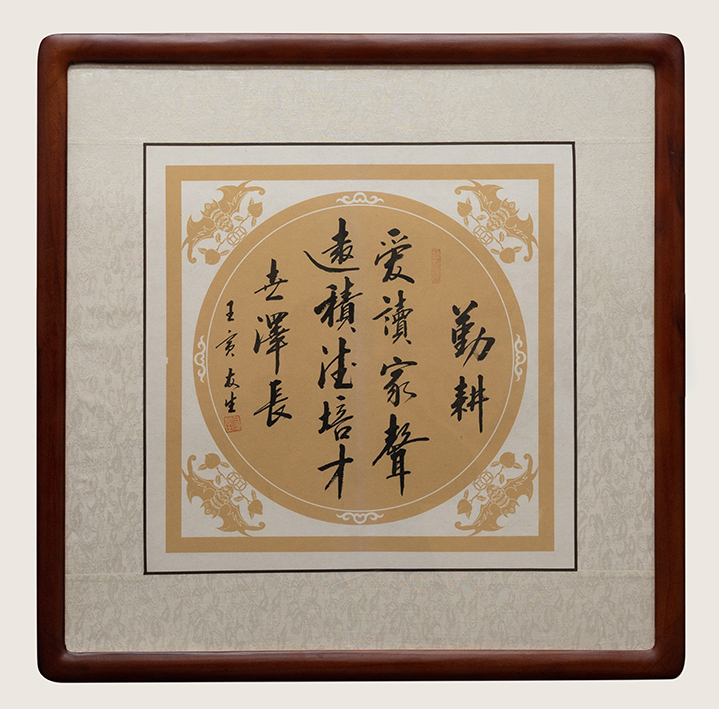 勤耕
愛讀家聲
遠積德培才
世澤長
壬寅友生